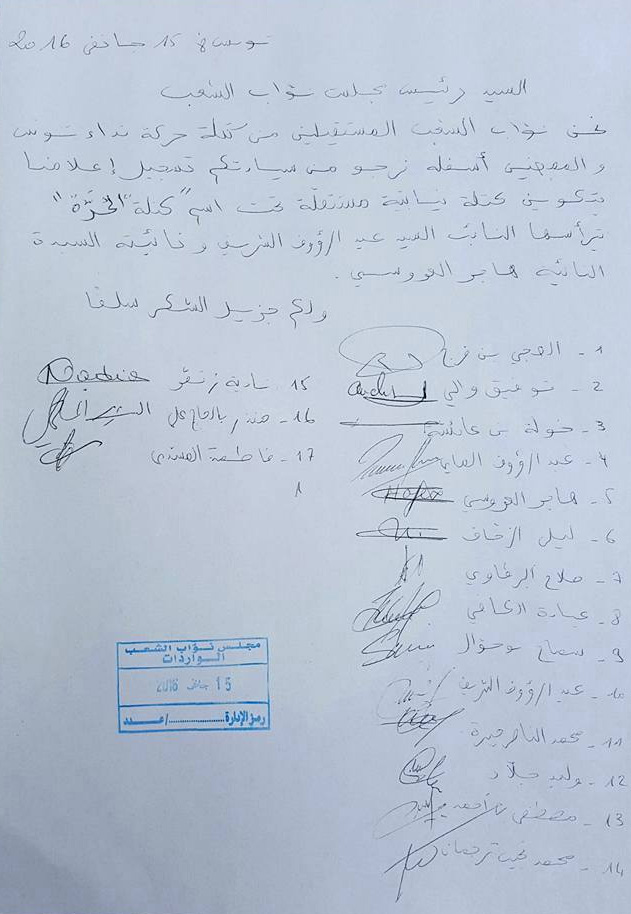 تونس في 15 جانفي 2016
السيد رئيس مجلس نواب الشعب
نحن نواب الشعب المستقيلين من كتلة حركة نداء تونس
و الممضين أسفله نرجو من سيادتكم تسجيل إعلامنا
بتكوين كتلة نيابية مستقلة تحت اسم "كتلة الحرّة"
يترأسها النائب السيد عبد الرؤوف الشريف و نائبته السيدة
النائبة هاجر العروسي.
ولكم جزيل الشكر سلفا
1 - بن فرج
2 - توفيق والي
3 - خولة بن عائشة
4 - عبد الرؤوف الماي
5 - هاجر العروسي
6 - ليلى الزحاف
7 - صلاح البرقاوي
8 - عبادة الكافي
9 - سماح بوحوال
10 - عبد الرؤوف الشريف
11 - محمد الناصر جبيرة
12 - وليد جلاد
13 - مصطفى بن أحمد
14 - محمد نجيب ترجمان
15 - نادية زنقر Nadia
16 - هندر بالحاج علي
17 - فاطمة المسدي
1
مجلس نواب الشعب
الواردات
15 جانفي 2016
رمز الإدارة............/عدد